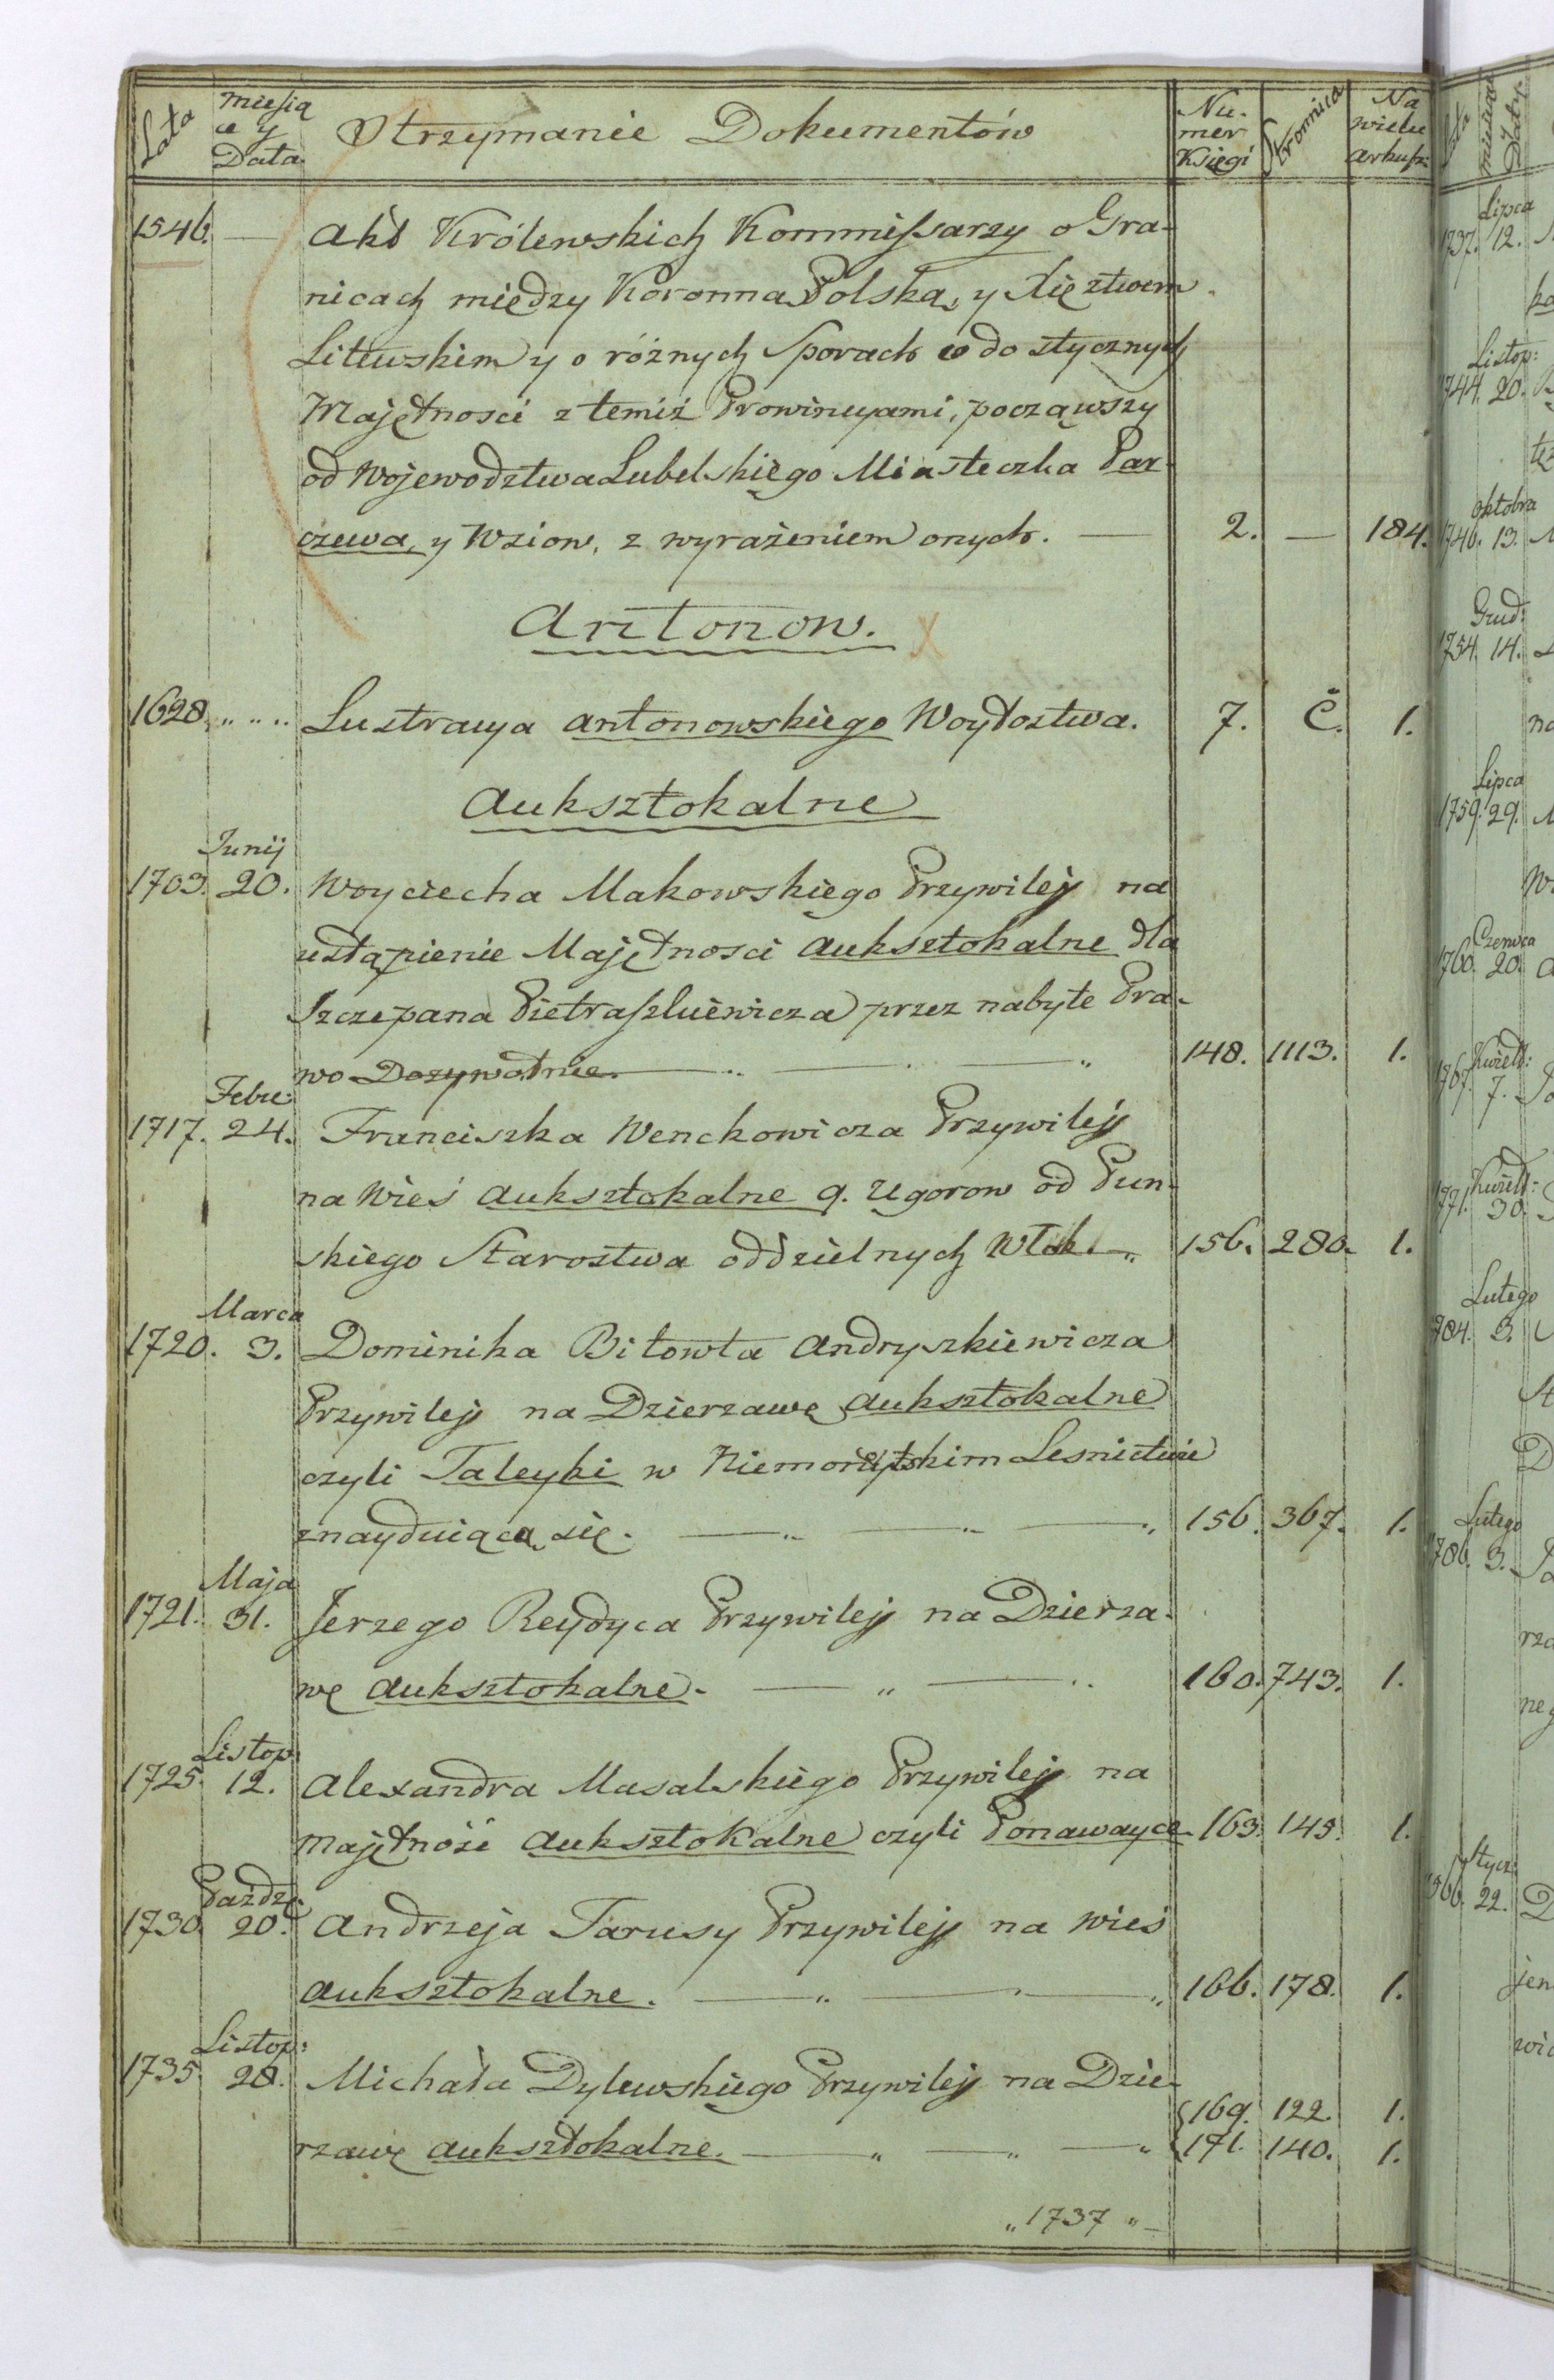 Lata miesią ce y Data Otrzymanie Dokumentów Nu- mer Księgi Stronnica Na wielu arkusz:
1546. — Akt Królewskich Kommissarzy o Gra-
nicach między Koronną Polską, y Xięztwem
Litewskim y o różnych Sporach do stycznych
Majętnosci z temiż Prowincyami, począwszy
od Wojewodztwa Lubelskiego Miasteczka Par-
czewa, y Wziow, z wyrażeniem onych. — 2. — 184.
Antonow.
1628. " " " Lustracya Antonowskiego Woytostwa. 7. C. 1.
Auksztokalne
Junij
1703. 20. Woyciecha Makowskiego Przywiley na
ustąpienie Majętnosci Auksztokalne dla
Szczepana Pietraszkiewicza przez nabyte Pra-
wo Dozywotnie. — " — " 148. 1113. 1.
Febr:
1717. 24. Franciszka Wenckowicza Przywiley
na Wieś Auksztokalne 9. Ugorow od Pun-
skiego Starostwa oddzielnych Włok. — " 156. 280. 1.
Marca
1720. 3. Dominika Bitowta Andryszkiewicza
Przywiley na Dzierzawę Auksztokalne
czyli Taleyki w Niemonytskim Lesnictwie
znayduiącą się. — " — " — " 156. 367. 1.
Maja
1721. 31. Jerzego Reydyca Przywiley na Dzierza-
wę Auksztokalne. — " — " 160. 743. 1.
Listop:
1725. 12. Alexandra Masalskiego Przywiley na
Majętność Auksztokalne czyli Ponawayce 163. 145. 1.
Paźdz:
1730. 20. Andrzeja Tarusy Przywiley na Wieś
Auksztokalne. — " — " — " 166. 178. 1.
Listop:
1735. 28. Michała Dylewskiego Przywiley na Dzie-
169. 122. 1.
rzawę Auksztokalne. — " — " — " 171. 140. 1.
" 1737 " —